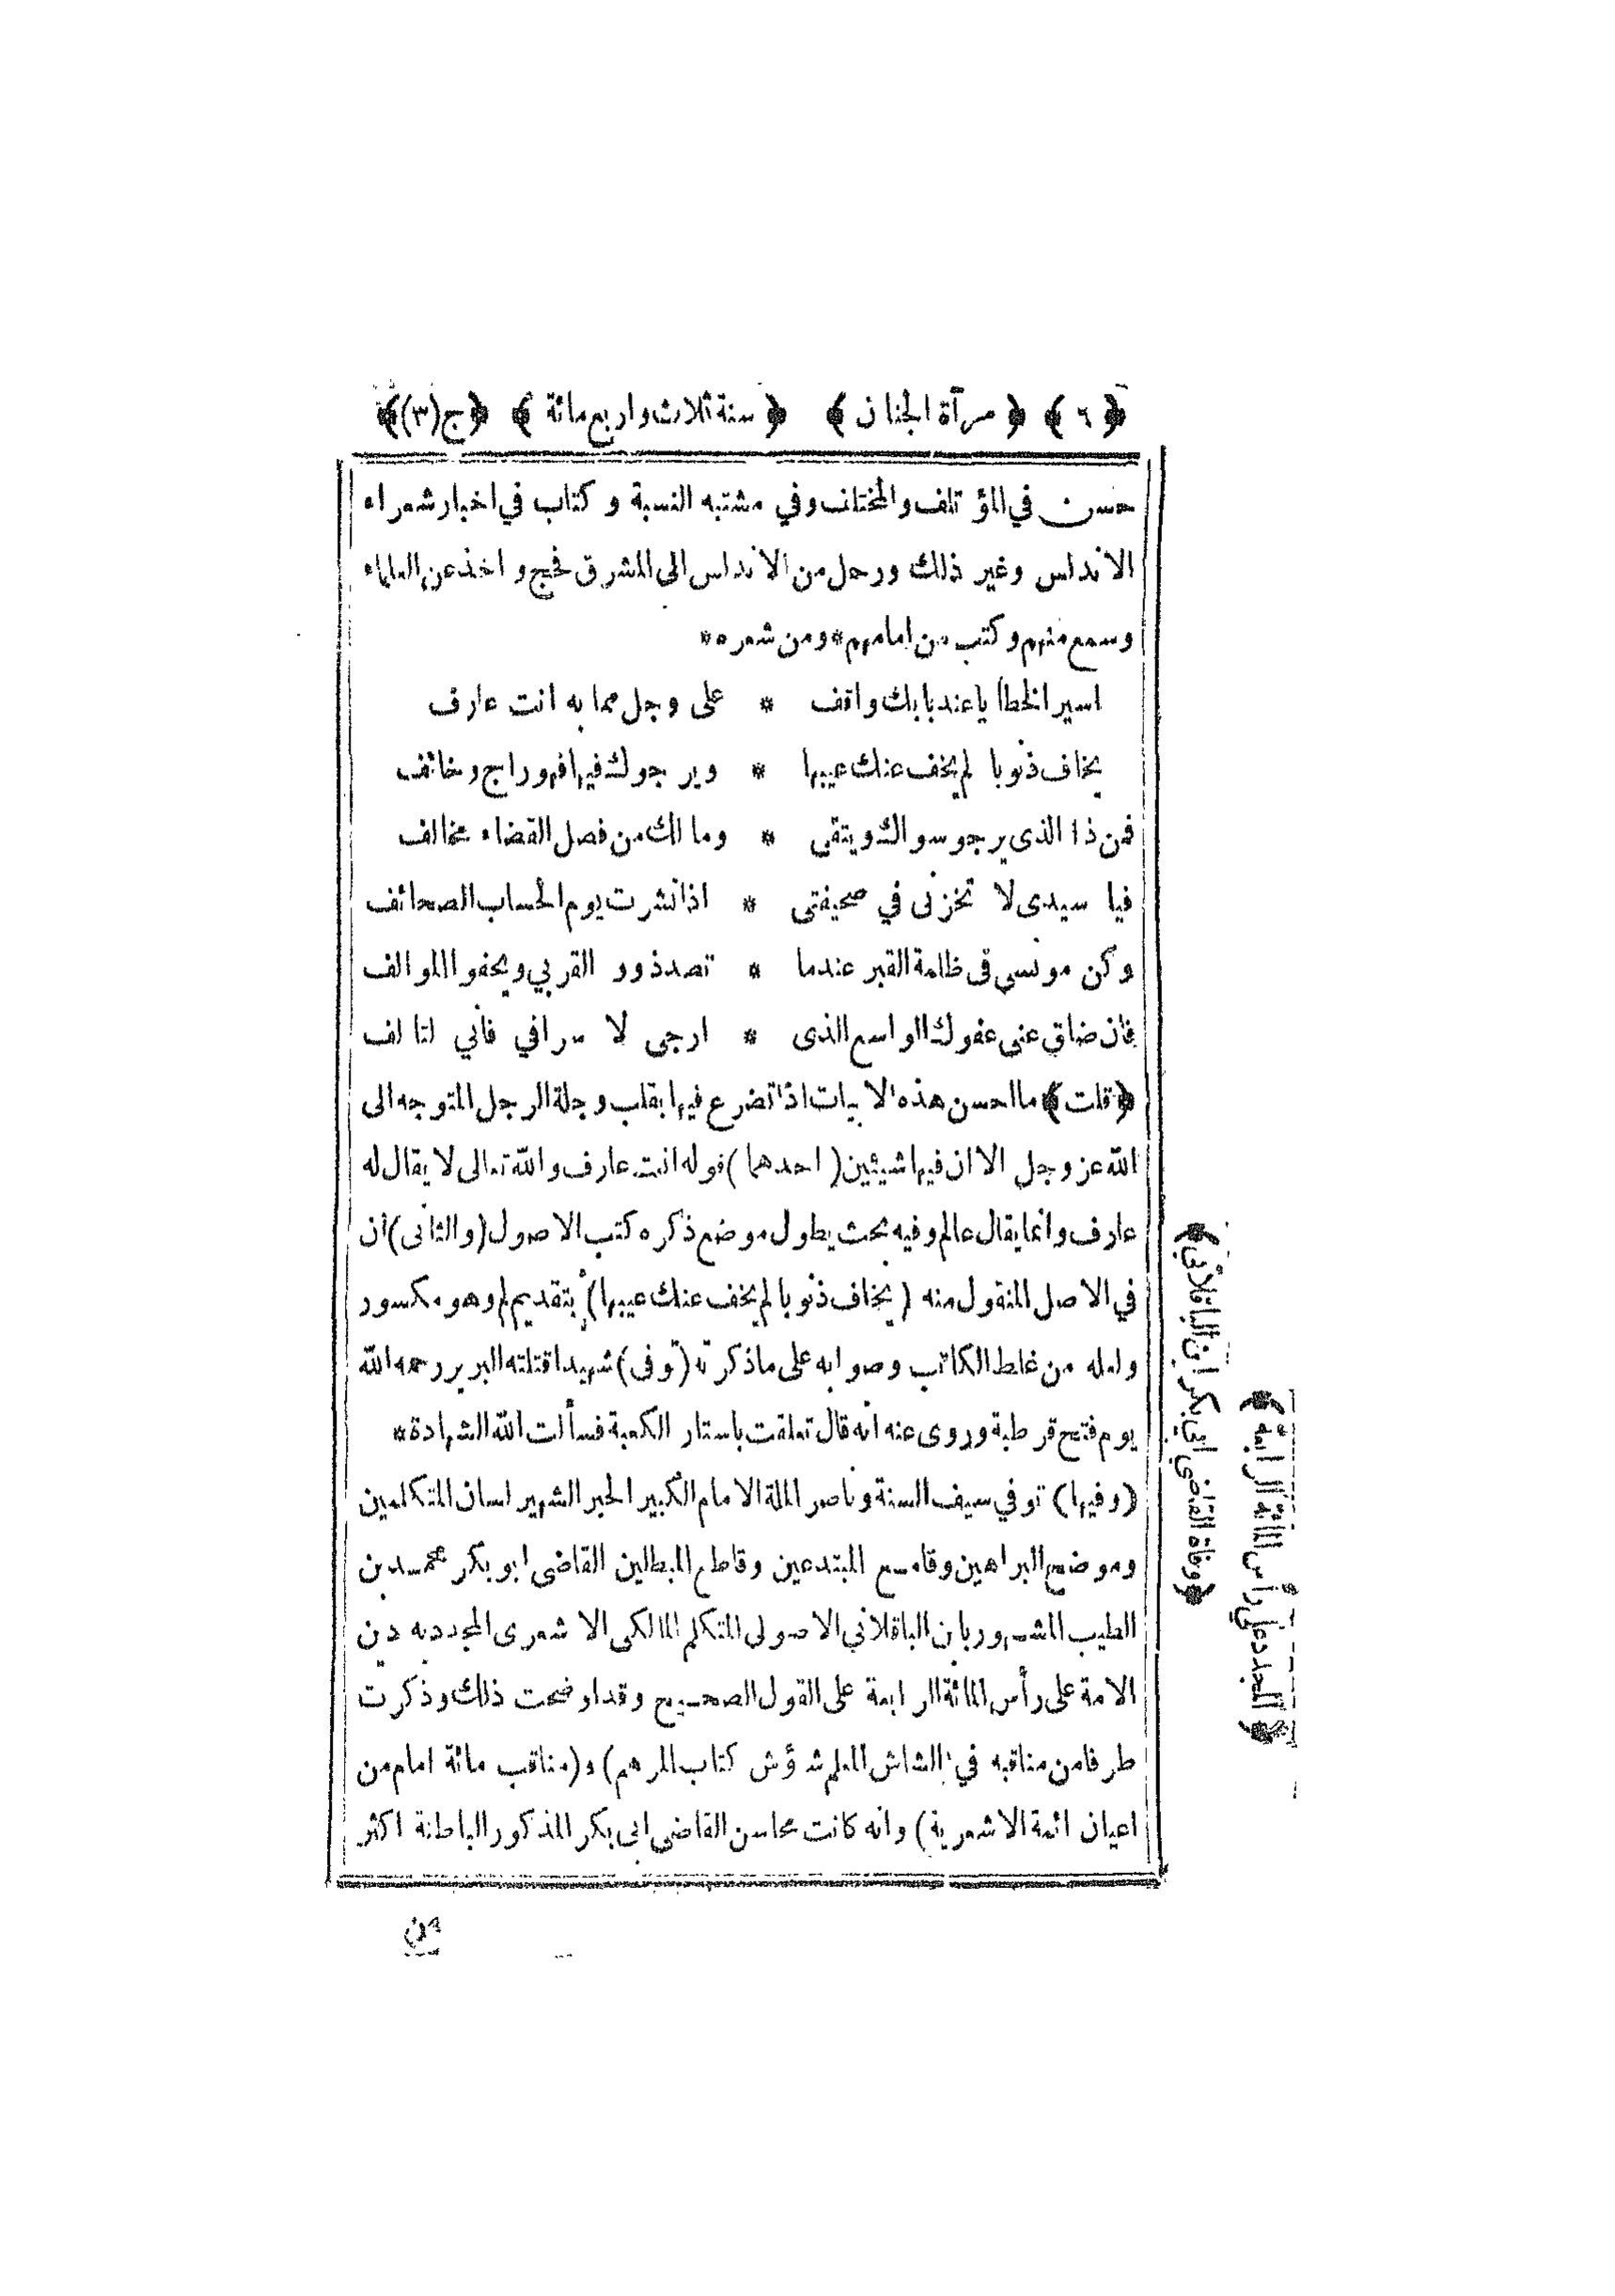 ﴿ ٦ ﴾ ﴿ مرآة الجنان ﴾ ﴿ سنة ثلاث واربع مائة ﴾ ﴿ ج (٣) ﴾
حسن في المؤتلف والمختلف وفي مشتبه النسبة و كتاب في اخبار شعراء
الاندلس وغير ذلك ورحل من الاندلس الى المشرق فحج واخذ عن العلماء
وسمع منهم وكتب من امامهم * ومن شعره *
اسير الخطايا عند بابك واقف * على وجل مما به انت عارف
يخاف ذنوبا لم يخف عنك عيبها * وير جوك فيها فهو راج وخائف
فمن ذا الذى يرجو سواك ويتقى * وما لك من فصل القضاء مخالف
فيا سيدى لا تخزنى في صحيفتى * اذا نشرت يوم الحساب الصحائف
وكن مونسى فى ظلمة القبر عندما * تصد ذوو القربي ويجفو الموالف
فان ضاق عنى عفوك الواسع الذى * ارجى لا سرافي فاني لتالف
﴿ قلت ﴾ ما احسن هذه الابيات اذا تضرع فيها بقلب وجلة الرجل المتوجه الى
الله عز وجل الا ان فيها شيئين ( احدهما ) قوله انت عارف والله تعالى لا يقال له
عارف وانما يقال عالم وفيه بحث يطول موضع ذكره كتب الاصول (والثانى) ان
في الاصل المنقول منه ( يخاف ذنوبا لم يخف عنك عيبها ) بتقديم لم وهو مكسور
ولعله من غلط الكاتب وصوابه على ماذكرته (توفى) شهيدا قتلته البربر رحمه الله
يوم فتح قرطبة وروى عنه انه قال تعلقت باستار الكعبة فسألت الله الشهادة *
(وفيها) توفي سيف السنة وناصر الملة الامام الكبير الحبر الشهير لسان المتكلمين
وموضح البراهين وقامع المبتدعين وقاطع المبطلين القاضى ابو بكر محمد بن
الطيب المشهور بابن الباقلاني الاصولى المتكلم المالكى الاشعرى المجدد به دين
الامة على رأس المائة الرابعة على القول الصحيح وقد اوضحت ذلك وذكرت
طرفا من مناقبه في الشاش المعلم شؤش كتاب المرهم) و (مناقب مائة امام من
اعيان ائمة الاشعرية) وانه كانت محاسن القاضى ابى بكر المذكور الباطنة اكثر
من
﴿ وفاة القاضي ابي بكر ابن الباقلاني ﴾
﴿ المجدد على رأس المائة الرابعة ﴾